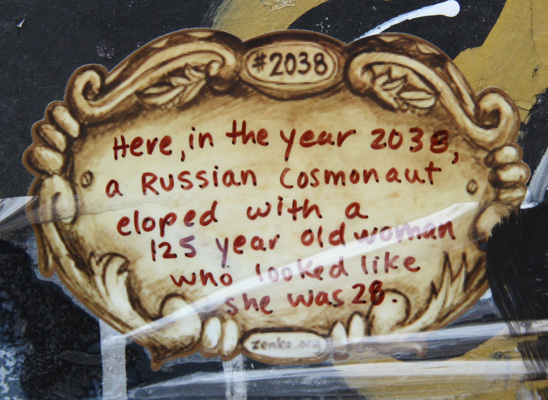 #2038
Here, in the year 2038,
a Russian Cosmonaut
eloped with a
125 year old woman
who looked like
she was 28.
zenka.org